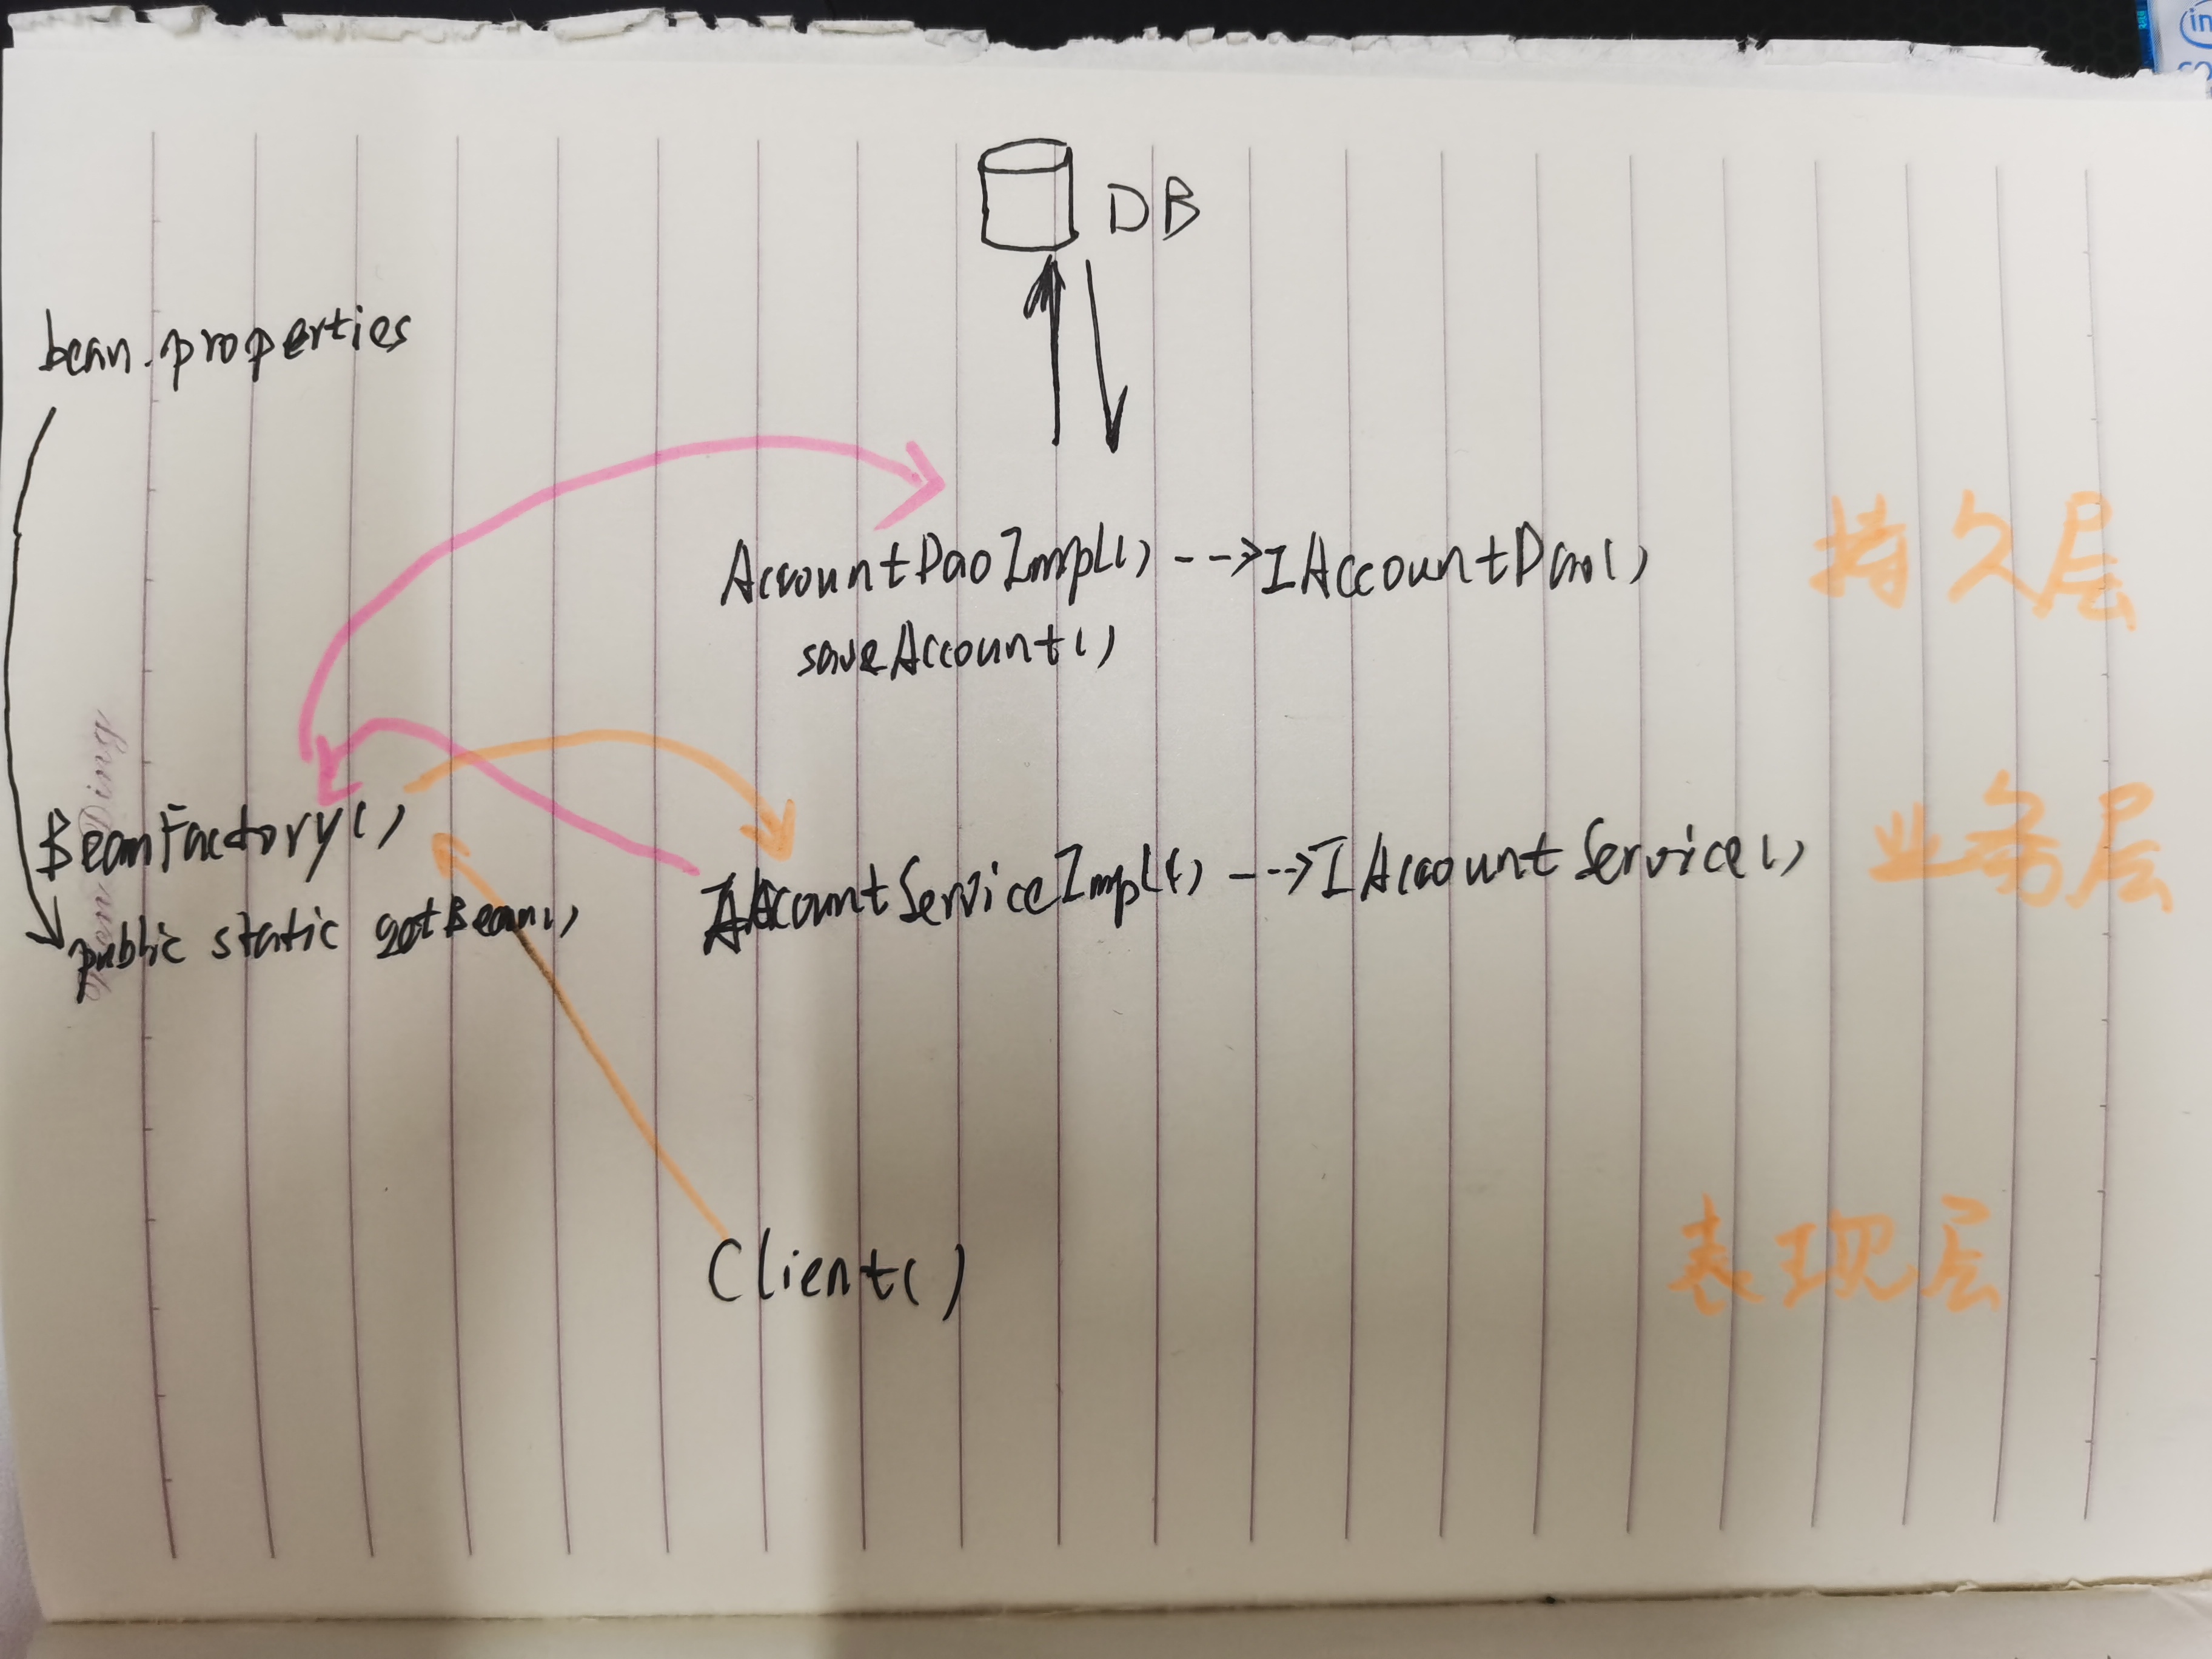 DB
bean.properties
AccountDaoImpl() --->IAccountDao() 持久层
saveAccount()
BeanFactory()
AccountServiceImpl() --->IAccountService() 业务层
public static getBean()
Client() 表现层